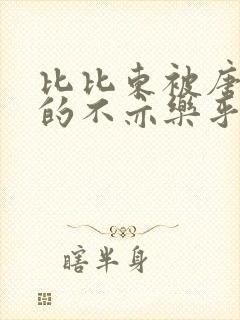 比比东被唐
的不亦乐乎
瞎半身